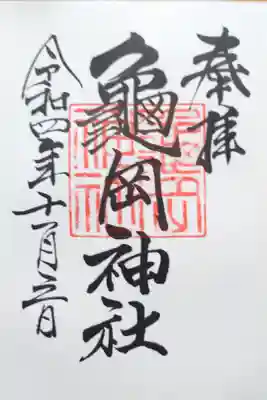 奉拝
龜岡神社
令和四年十一月三日